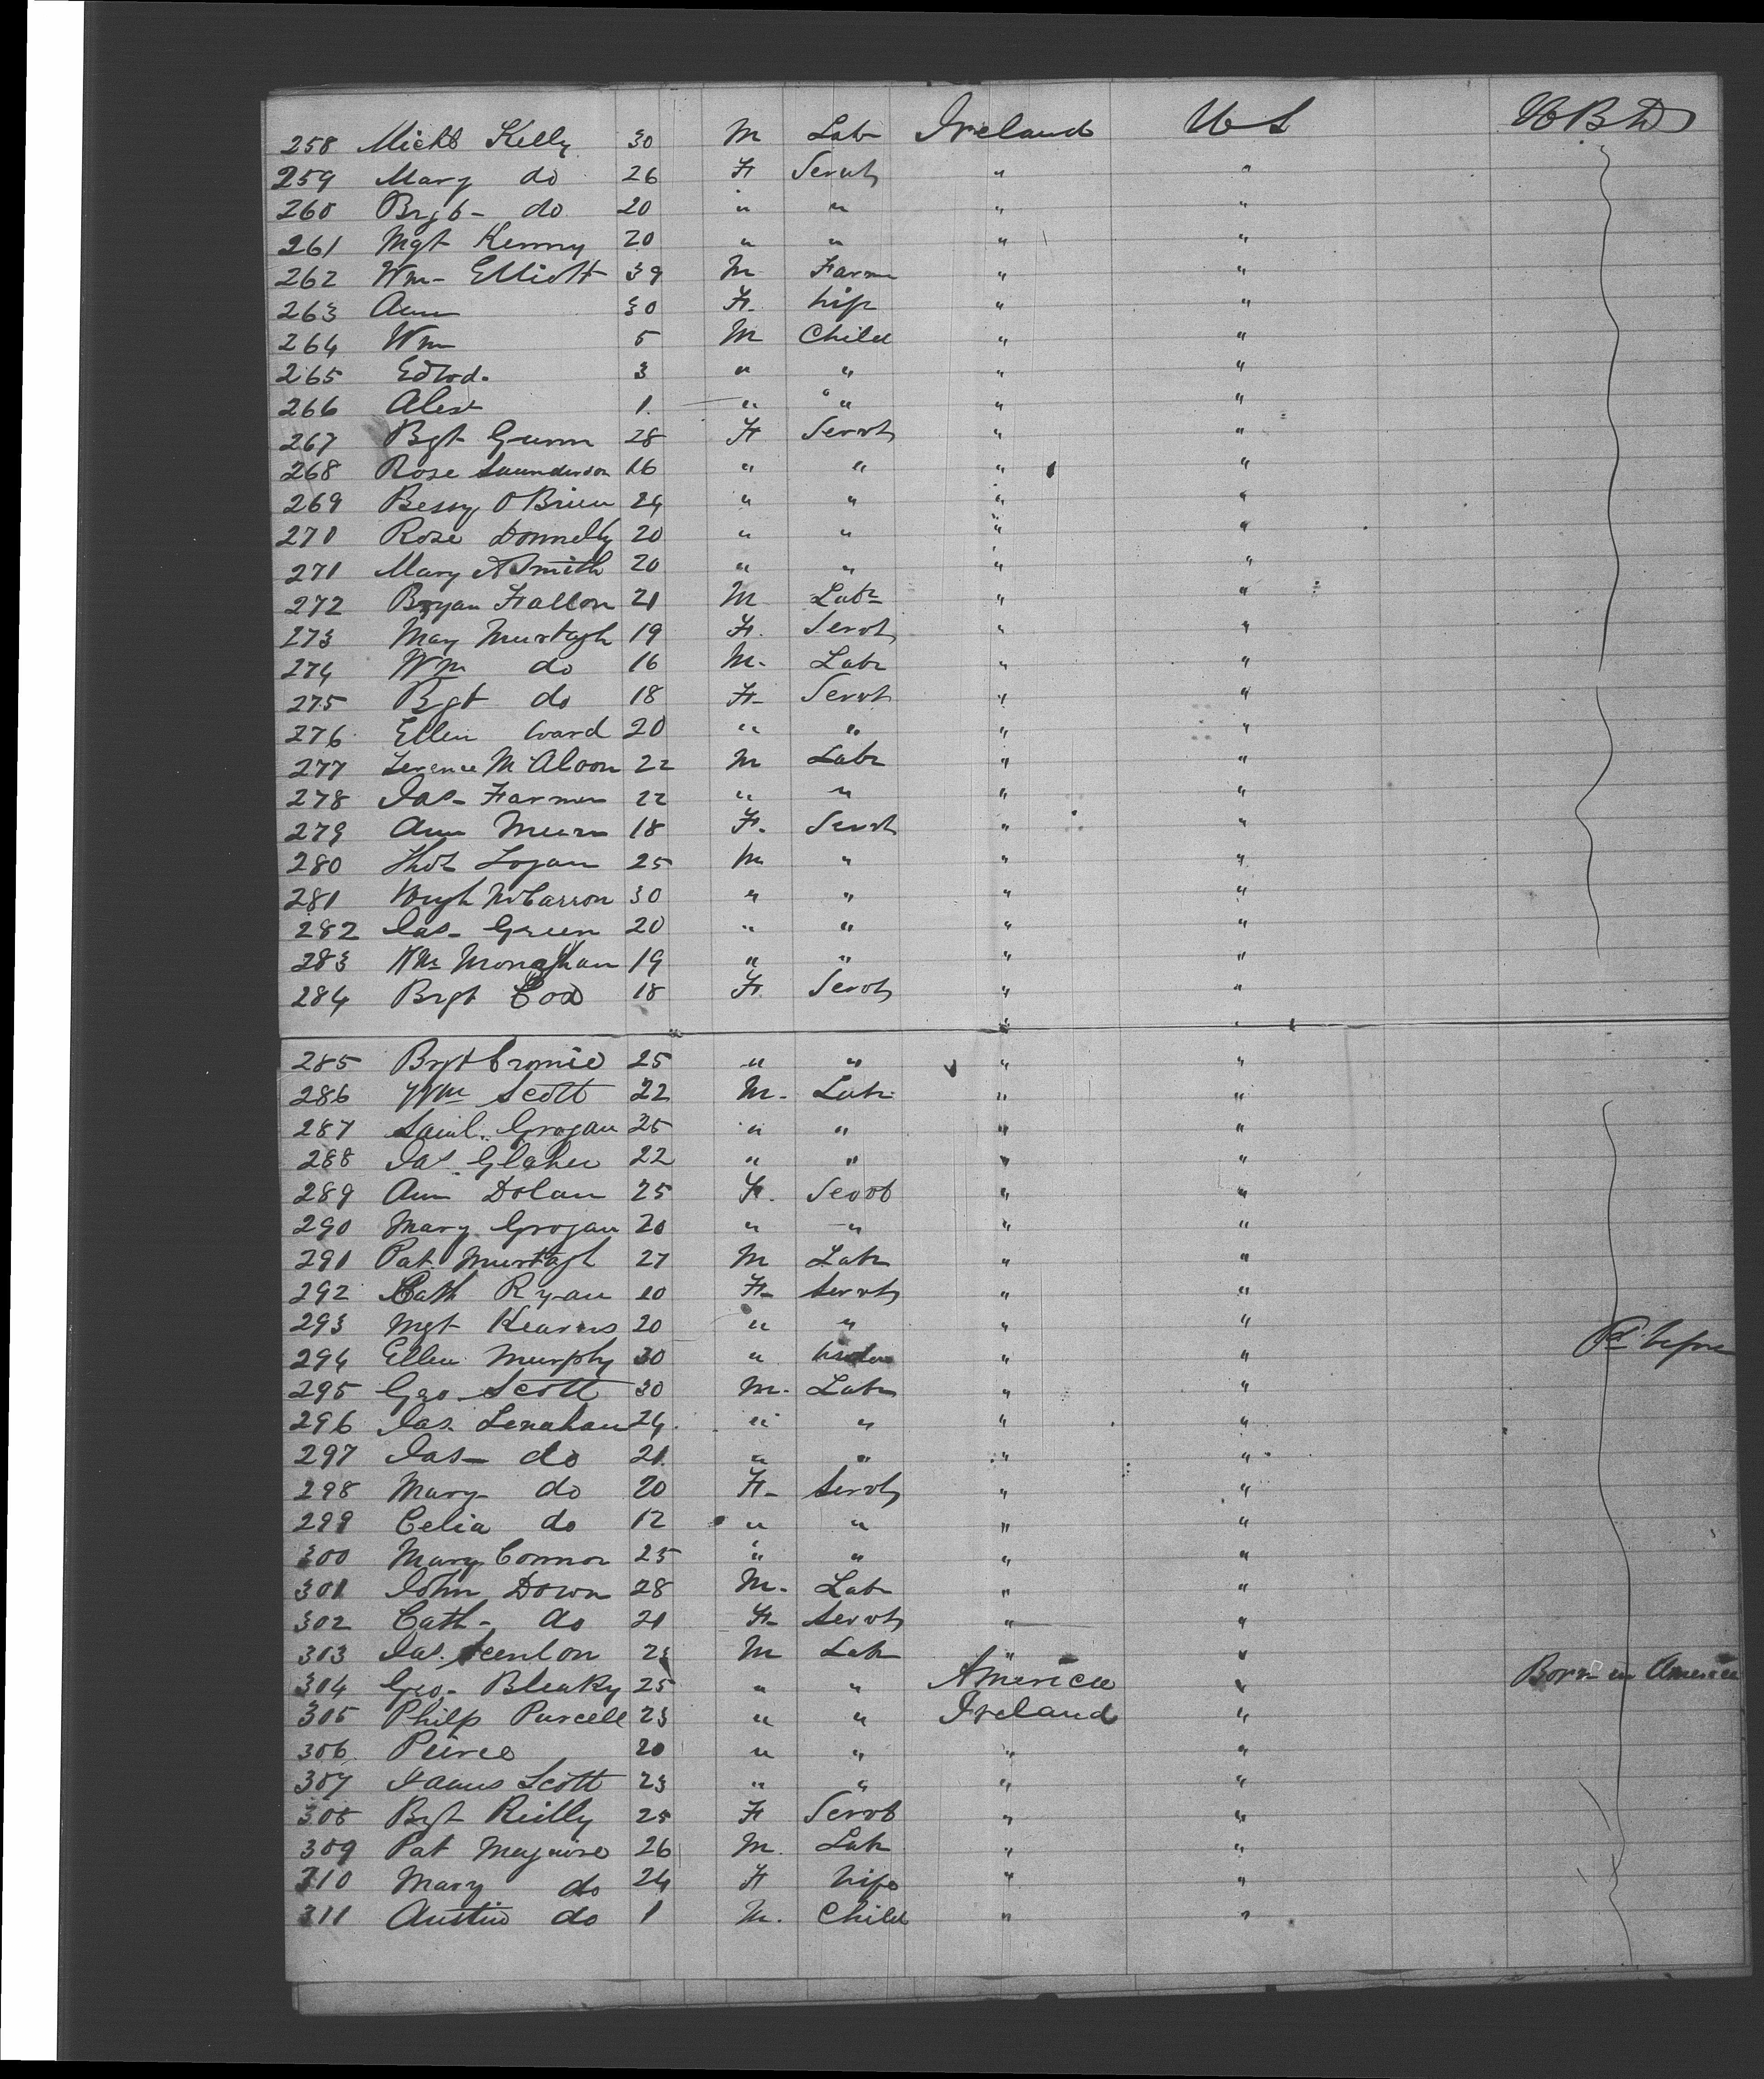 258 Michl Kelly 30 M Labr Ireland U S
259 Mary do 26 F Servt " "
260 Brgt- do 20 " " " "
261 Mgt Kenny 20 " " " "
262 Wm- Elliott 39 M Farmr " "
263 Ann 30 F. Wife " "
264 Wm 5 M Child " "
265 Edwd. 3 " " " "
266 Alexr 1. " " " "
267 Bgt Gunn 28 F Servt " "
268 Rose Saunderson 16 " " " "
269 Bessy O Brien 24 " " " "
270 Rose Donnelly 20 " " " "
271 Mary A Smith 20 " " " "
272 Bryan Fallon 21 M Labr " "
273 Mary Murtagh 19 F. Servt " "
274 Wm do 16 M. Labr " "
275 Bgt do 18 F- Servt " "
276 Ellen Ward 20 " " " "
277 Terence M Aloon 22 M Labr " "
278 Jas- Farmer 22 " " " "
279 Ann 18 F. Servt " "
280 Thos Logan 25 M " " "
281 Hugh McCarron 30 " " " "
282 Jas- Green 20 " " " "
283 Wm Monaghan 19 " " " "
284 Brgt Cox 18 F. Servt " "
285 Brgt Cromie 25 " " " "
286 Wm Scott 22 M. Labr " "
287 Saml. Grogan 25 " " " "
288 Jas. 22 " " " "
289 Ann Dolan 25 F. Servt " "
290 Mary Grogan 20 " " " "
291 Pat. Murtagh 27 M Labr " "
292 Cath Ryan 20 F- Servt " "
293 Mgt Kearns 20 " " " "
294 Ellen Murphy 30 " " " before
295 Geo Scott 30 M. Labr " "
296 Jas. Lenahan 24. " " " "
297 Jas- do 21. " " " "
298 Mary- do 20 F- Servt " "
299 Celia do 12 " " " "
300 Mary Connor 25 " " " "
301 John Down 28 M. Labr " "
302 Cath- do 21 F- Servt " "
303 Jas. Scenlon 23 M Labr " "
304 Geo- Bleaky 25 " " America " Born in America
305 Philp Purcell 23 " " Ireland "
306. Pierce 20 " " " "
307 James Scott 23 " " " "
308 Bgt Reilly 25 F Servt " "
309 Pat Maguire 26 M. Labr " "
310 Mary do 24 F Wife " "
311 Austin do 1 M. Child " "